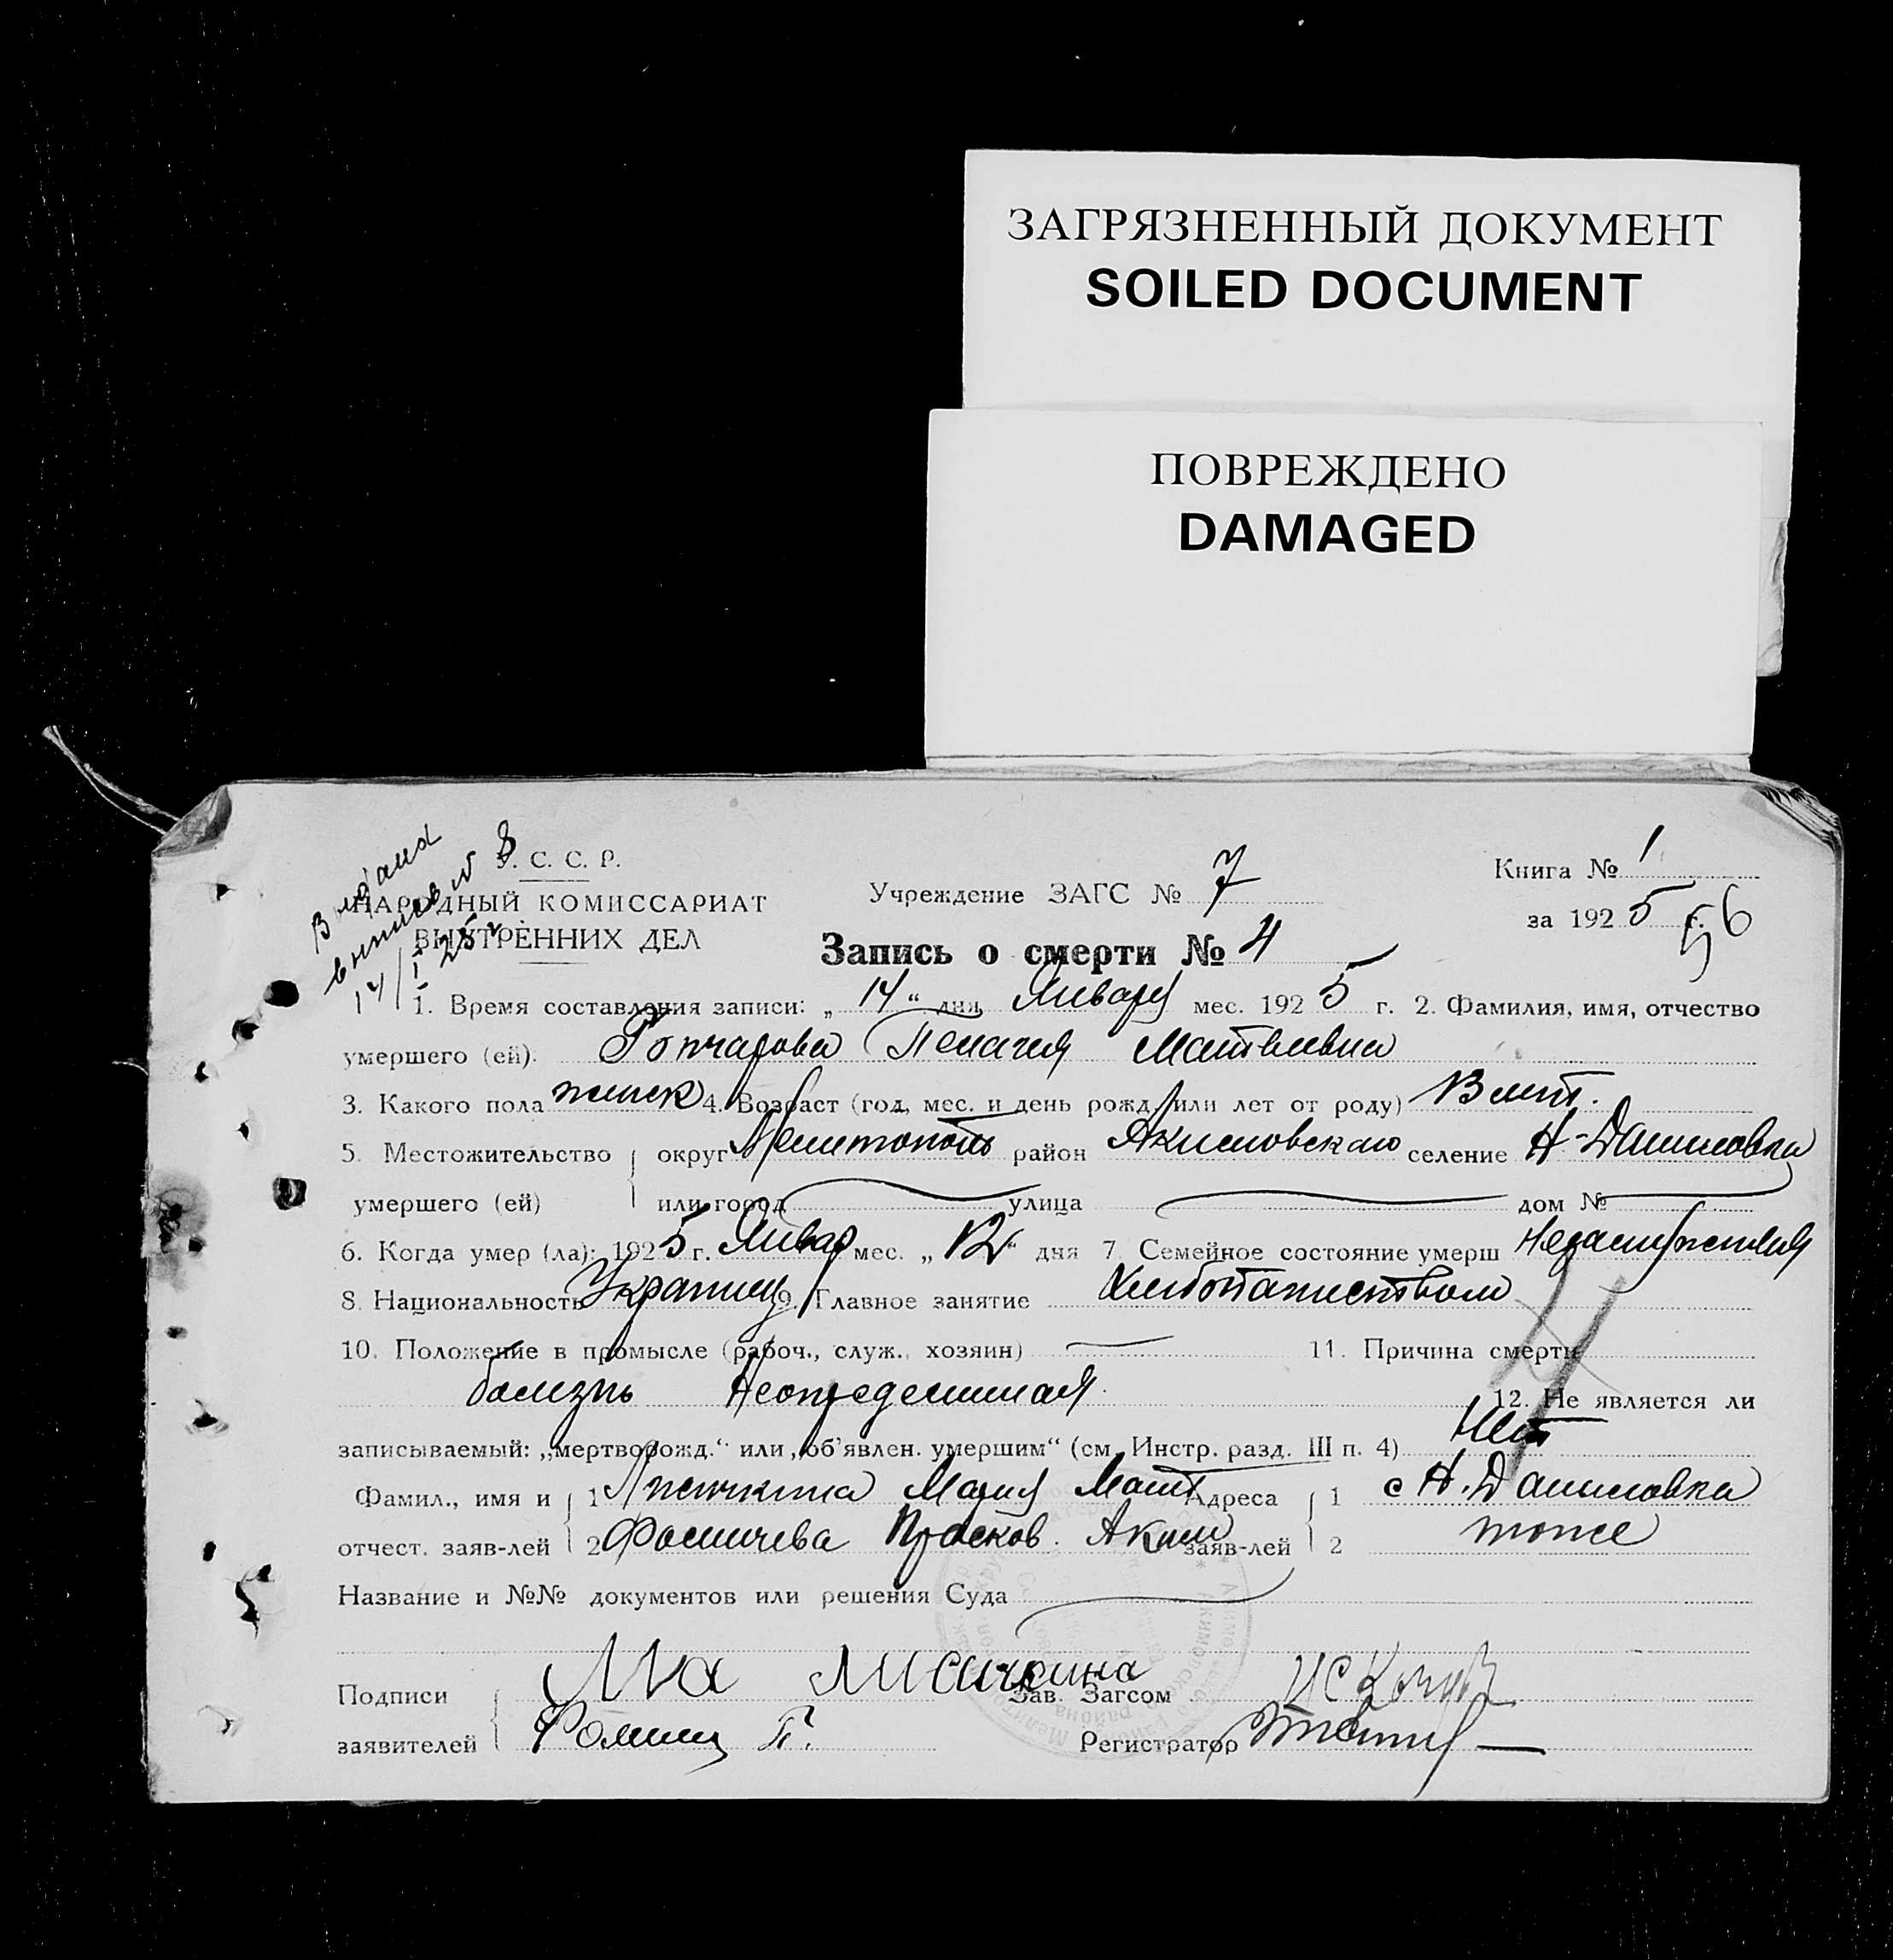 ЗАГРЯЗНЕННЫЙ ДОКУМЕНТ
SOILED DOCUMENT
ПОВРЕЖДЕНО
DAMAGED
Выдана
выпись № 8
14/I 25 г
У. С. С. Р.
НАРОДНЫЙ КОМИССАРИАТ
ВНУТРЕННИХ ДЕЛ
Учреждение ЗАГС № 7
Книга № 1
за 1925 г.
56
Запись о смерти № 4
1. Время составления записи: „14“ дня Января мес. 1925 г. 2. Фамилия, имя, отчество
умершего (ей). Гончарова Пелагия Матвеевна
3. Какого пола женск 4. Возраст (год, мес. и день рожд. или лет от роду) 3 лет.
5. Местожительство округ Мелитополь район Акимовского селение Н-Даниловка
умершего (ей) или город улица дом №
6. Когда умер (ла): 1925 г. Январ мес. „12“ дня 7. Семейное состояние умерш
8. Национальность Украинец 9. Главное занятие Хлебопашеством
10. Положение в промысле (рабоч., служ., хозяин) 11. Причина смерти
болезнь Неопределиная
12. Не является ли
записываемый: „мертворожд.“ или „об'явлен. умершим“ (см. Инстр. разд. III п. 4) Нет
Фамил., имя и 1 Мария Мат Адреса 1 с Н. Даниловка
отчест. заяв-лей 2 Фомичева Прасков. Аким заяв-лей 2 тоже
Название и №№ документов или решения Суда
Подписи Зав. Загсом
заявителей П. Регистратор